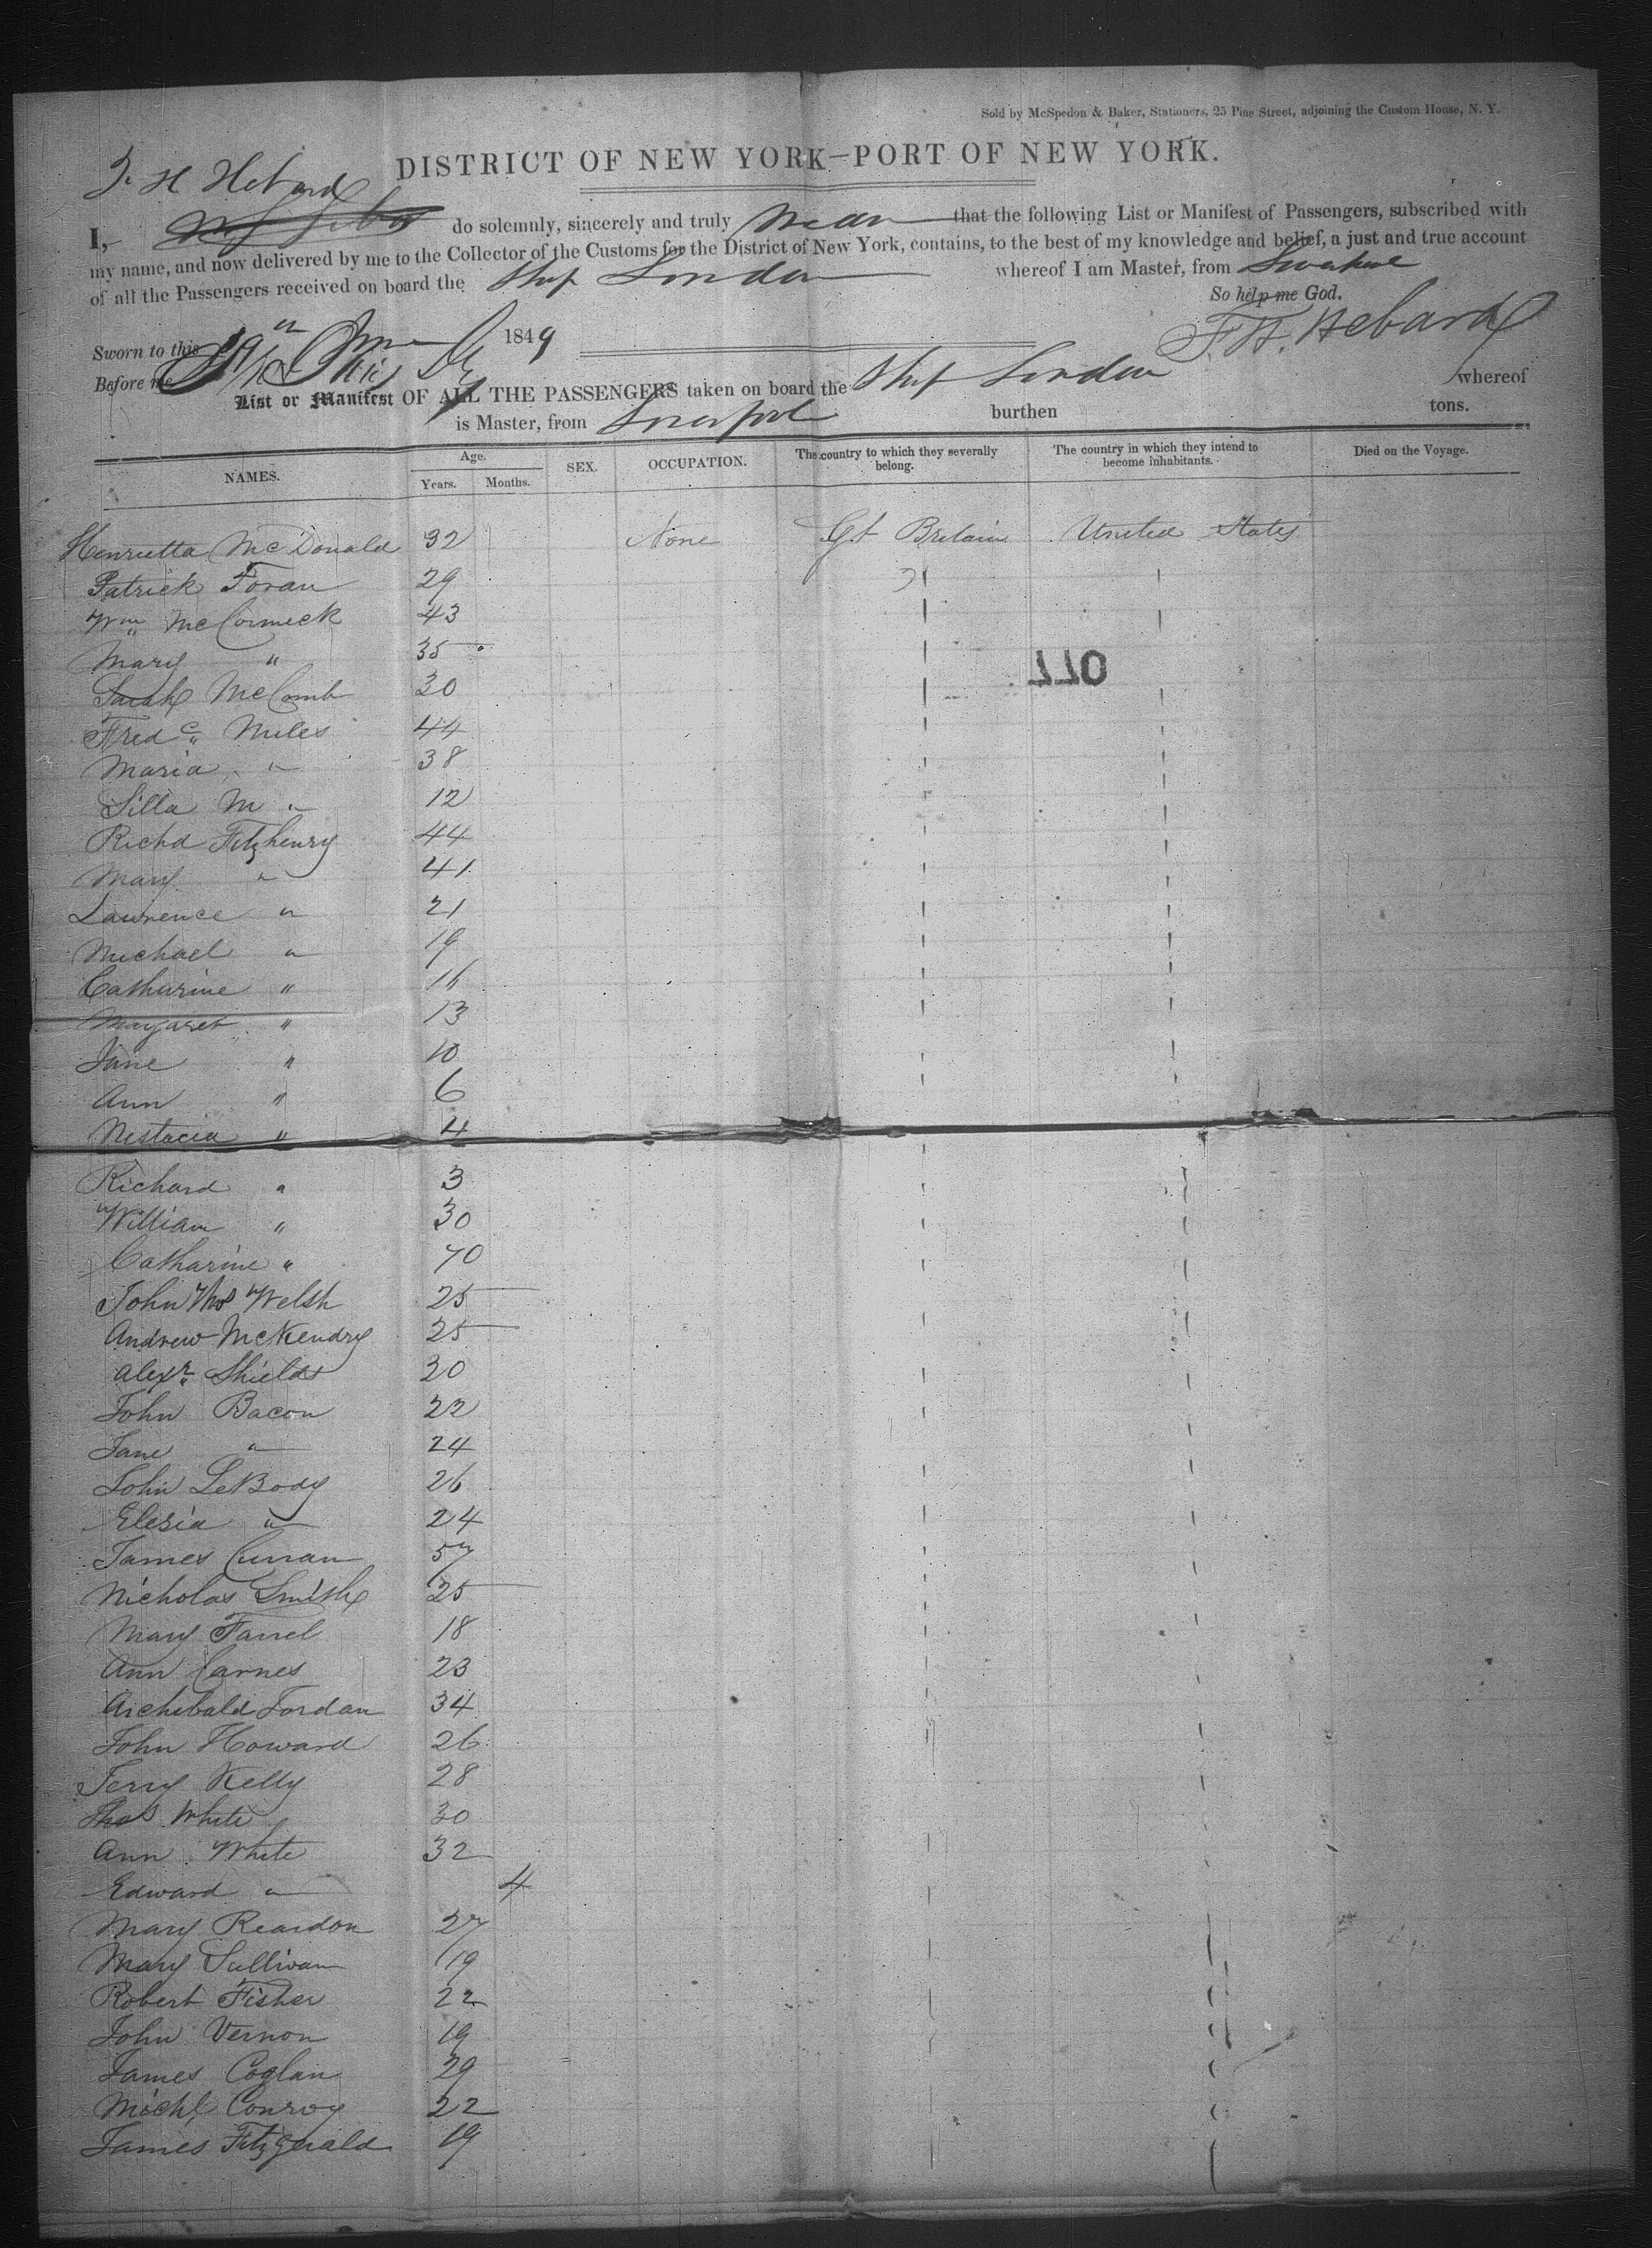 Sold by McSpedon & Baker, Stationers, 25 Pine Street, adjoining the Custom House, N. Y.
DISTRICT OF NEW YORK—PORT OF NEW YORK.
F. H Hebard
I, do solemnly, sincerely and truly swear that the following List or Manifest of Passengers, subscribed with
my name, and now delivered by me to the Collector of the Customs for the District of New York, contains, to the best of my knowledge and belief, a just and true account
of all the Passengers received on board the Ship London whereof I am Master, from Liverpool
So help me God.
Sworn to this 19th 1849
F. H. Hebard
Before me
List or Manifest OF ALL THE PASSENGERS taken on board the Ship London whereof
is Master, from Liverpool burthen tons.
NAMES. Age. Years. Months. SEX. OCCUPATION. The country to which they severally belong. The country in which they intend to become inhabitants. Died on the Voyage.
Henrietta McDonald 32 None Gt Britain United States
Patrick Foran 29
Wm McCormick 43
Mary " 35
Sarah McComb 30
077
Fredc Miles 44
Maria " 38
Silla M " 12
Richd Fitzhenry 44
Mary " 41
Lawrence " 21
Michael " 19
Catherine " 16
Margaret " 13
Jane " 10
Ann " 6
Nestacia " 4
Richard " 3
William " 30
Catharine " 70
John Thos Welsh 25
Andrew McKendry 25
Alexr Shields 30
John Bacon 22
Jane " 24
John LeBody 26
Elesia " 24
James Curran 57
Nicholas Smith 25
Mary Farrel 18
Ann Carnes 23
Archibald Jordan 34
John Howard 26
Jerry Kelly 28
Thos White 30
Ann White 32
Edward " 4
Mary Reardon 27
Mary Sullivan 19
Robert Fisher 22
John Vernon 19
James Coglan 29
Michl Conroy 22
James Fitzgerald 19